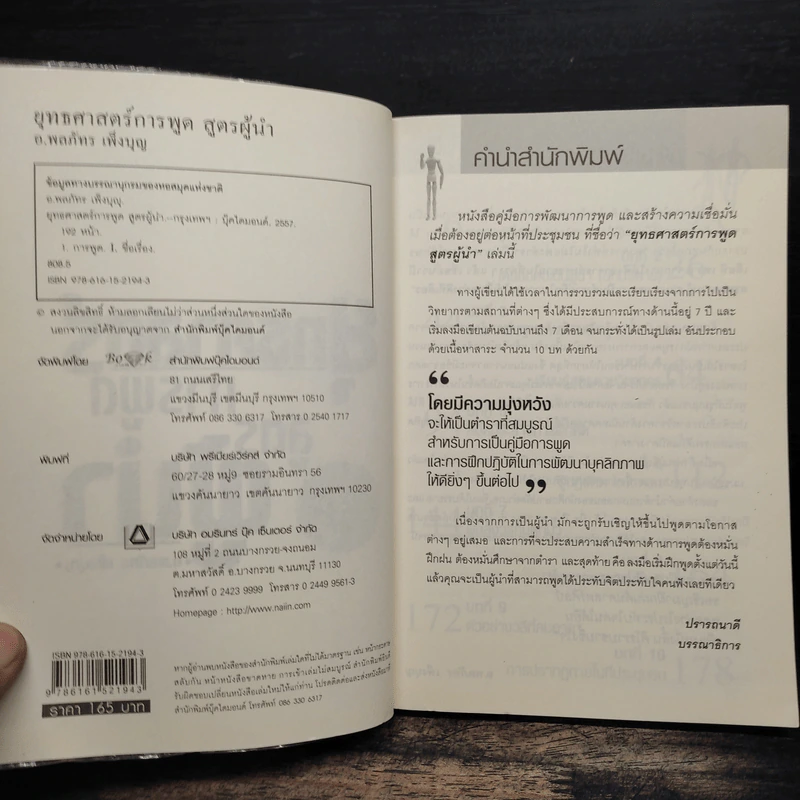 ยุทธศาสตร์การพูด สูตรผู้นำ
อ.พลภัทร เพ็งบุญ
ข้อมูลทางบรรณานุกรมของหอสมุดแห่งชาติ
อ.พลภัทร เพ็งบุญ.
ยุทธศาสตร์การพูด สูตรผู้นำ.--กรุงเทพฯ : บุ๊คไดมอนด์. 2557.
192 หน้า.
1. การพูด. I. ชื่อเรื่อง.
808.5
ISBN 978-616-15-2194-3
© สงวนลิขสิทธิ์ ห้ามลอกเลียนไม่ว่าส่วนหนึ่งส่วนใดของหนังสือ
นอกจากจะได้รับอนุญาตจาก สำนักพิมพ์บุ๊คไดมอนด์
จัดพิมพ์โดย Book สำนักพิมพ์บุ๊คไดมอนด์
81 ถนนเสรีไทย
แขวงมีนบุรี เขตมีนบุรี กรุงเทพฯ 10510
โทรศัพท์ 086 330 6317 โทรสาร 0 2540 1717
พิมพ์ที่ บริษัท พรีเมียร์เวิร์กส์ จำกัด
60/27-28 หมู่9 ซอยรามอินทรา 56
แขวงคันนายาว เขตคันนายาว กรุงเทพฯ 10230
จัดจำหน่ายโดย บริษัท อมรินทร์ บุ๊ค เซ็นเตอร์ จำกัด
108 หมู่ที่ 2 ถนนบางกรวย-จงถนอม
ต.มหาสวัสดิ์ อ.บางกรวย จ.นนทบุรี 11130
โทรศัพท์ 0 2423 9999 โทรสาร 0 2449 9561-3
Homepage : http://www.naiin.com
ISBN 978-616-15-2194-3
9786161521943
ราคา 165 บาท
หากผู้อ่านพบหนังสือของสำนักพิมพ์เล่มใดที่ไม่ได้มาตรฐาน เช่น หน้ากระดาษ
สลับกัน หน้าหนังสือขาดหาย การเข้าเล่มไม่สมบูรณ์ สำนักพิมพ์ยินดี
รับผิดชอบเปลี่ยนหนังสือเล่มใหม่ให้แก่ท่าน โปรดติดต่อและส่งหนังสือมาที่
สำนักพิมพ์บุ๊คไดมอนด์ โทรศัพท์ 086 330 6317
คำนำสำนักพิมพ์
หนังสือคู่มือการพัฒนาการพูด และสร้างความเชื่อมั่น
เมื่อต้องอยู่ต่อหน้าที่ประชุมชน ที่ชื่อว่า “ยุทธศาสตร์การพูด
สูตรผู้นำ” เล่มนี้
ทางผู้เขียนได้ใช้เวลาในการรวบรวมและเรียบเรียงจากการไปเป็น
วิทยากรตามสถานที่ต่างๆ ซึ่งได้มีประสบการณ์ทางด้านนี้อยู่ 7 ปี และ
เริ่มลงมือเขียนต้นฉบับนานถึง 7 เดือน จนกระทั่งได้เป็นรูปเล่ม อันประกอบ
ด้วยเนื้อหาสาระ จำนวน 10 บท ด้วยกัน
“
โดยมีความมุ่งหวัง
จะให้เป็นตำราที่สมบูรณ์
สำหรับการเป็นคู่มือการพูด
และการฝึกปฏิบัติในการพัฒนาบุคลิกภาพ
ให้ดียิ่งๆ ขึ้นต่อไป ”
เนื่องจากการเป็นผู้นำ มักจะถูกรับเชิญให้ขึ้นไปพูดตามโอกาส
ต่างๆ อยู่เสมอ และการที่จะประสบความสำเร็จทางด้านการพูดต้องหมั่น
ฝึกฝน ต้องหมั่นศึกษาจากตำรา และสุดท้าย คือ ลงมือเริ่มฝึกพูดตั้งแต่วันนี้
แล้วคุณจะเป็นผู้นำที่สามารถพูดได้ประทับจิตประทับใจคนฟังเลยทีเดียว
ปรารถนาดี
บรรณาธิการ